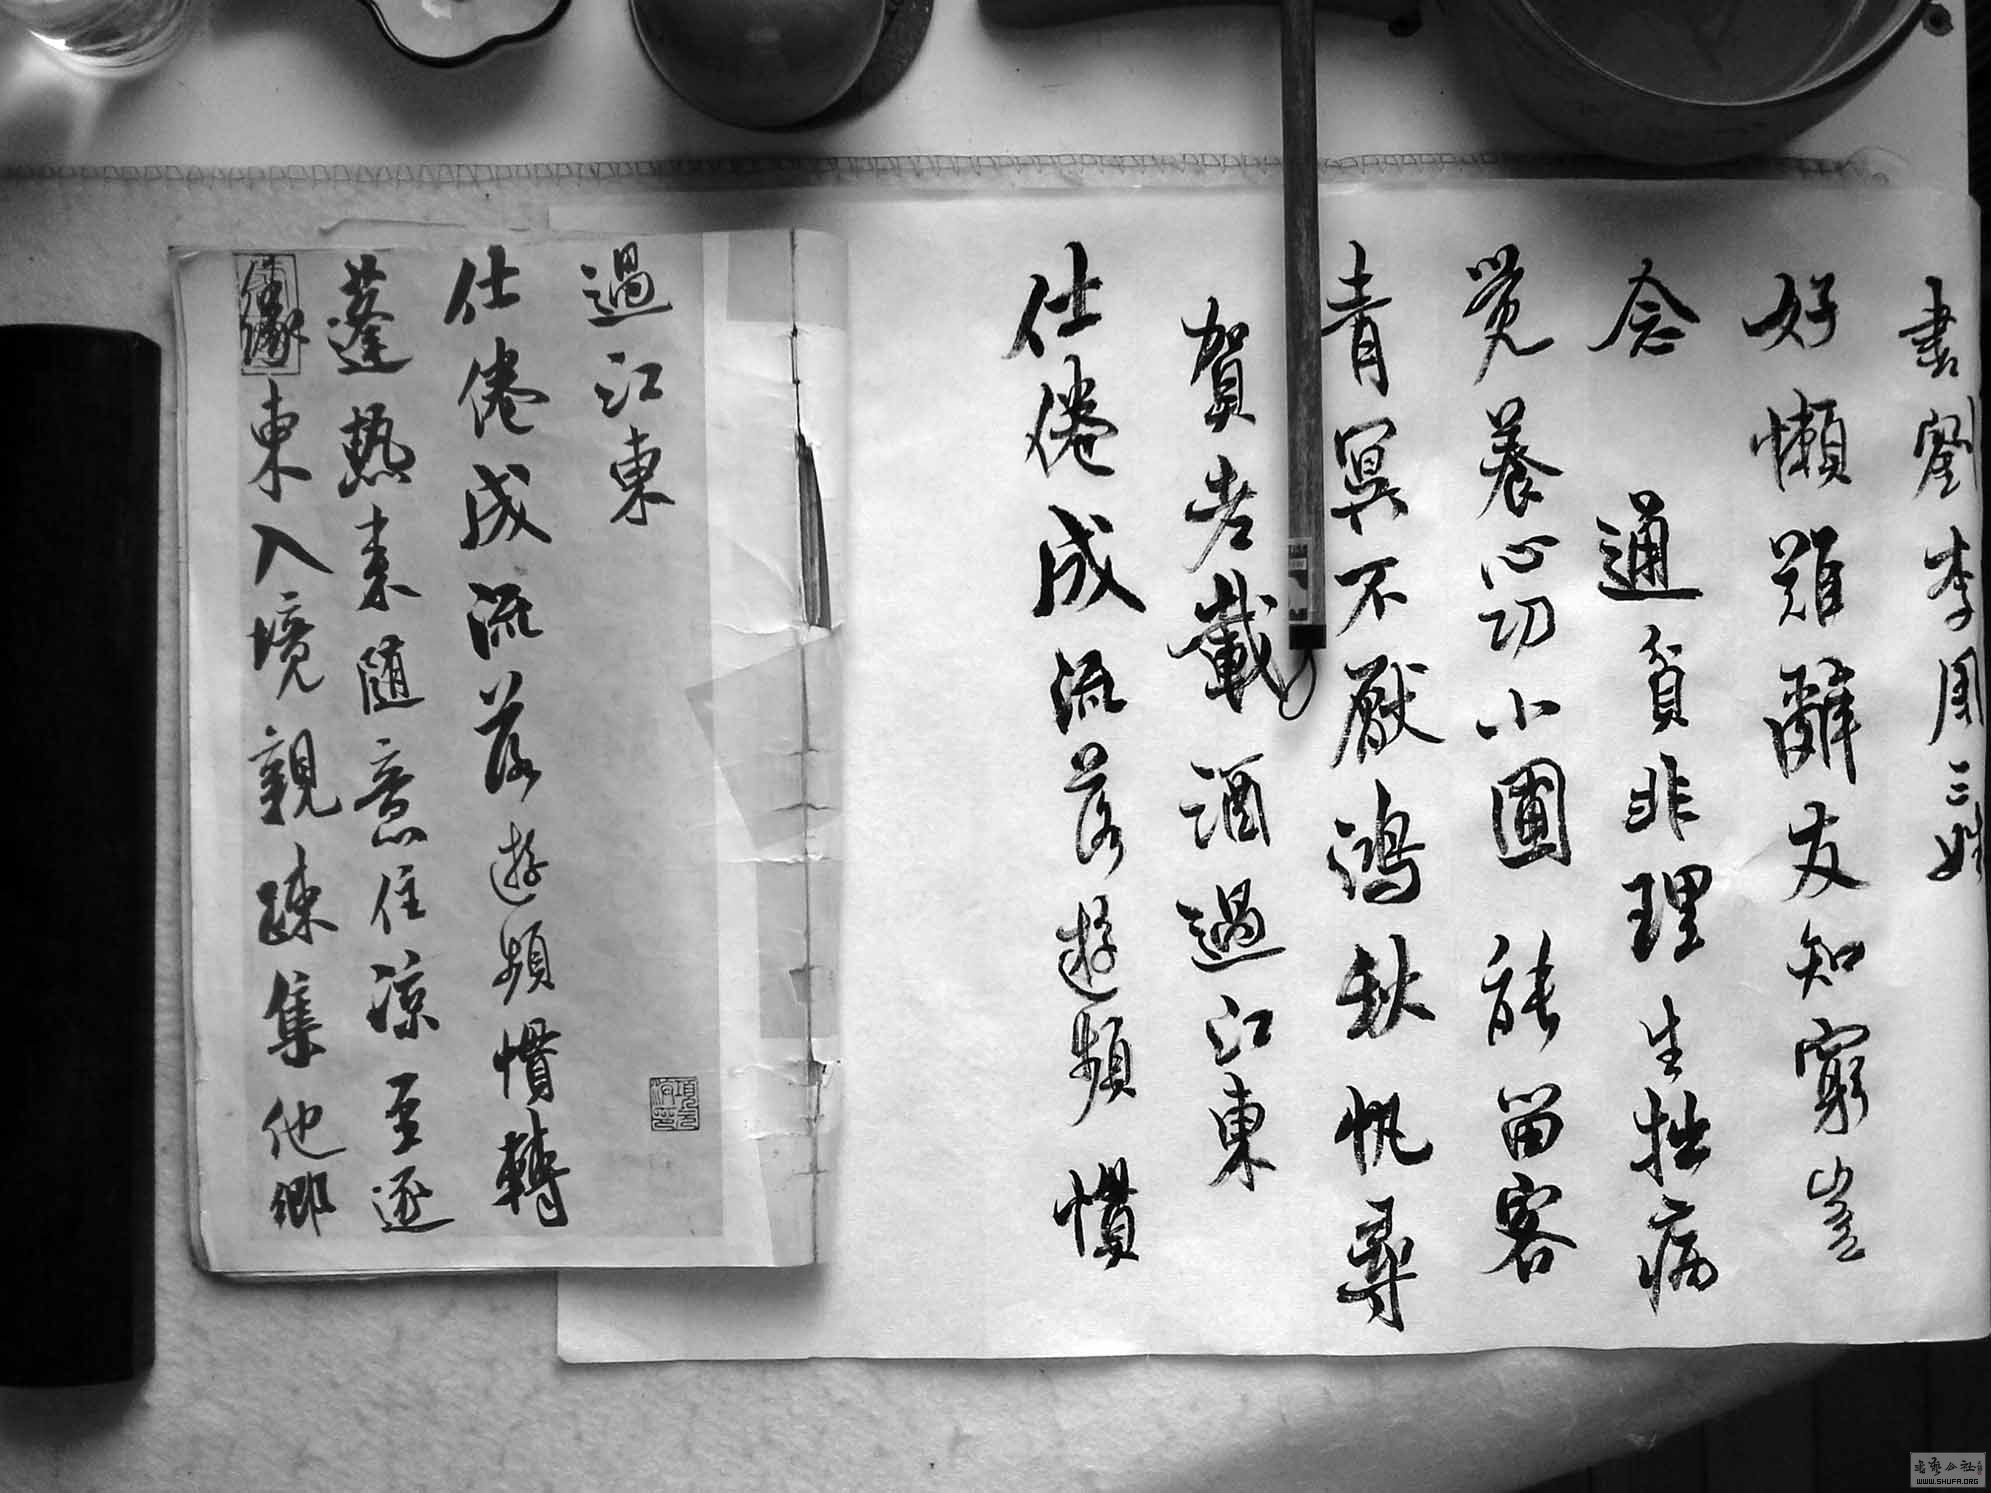 書劉李周三姓
好懶難辭友知窮豈
念通貧非理生拙病
覺養心功小圃能留客
青冥不厭鴻秋帆尋
賀老載酒過江東
仕倦成流落遊頻慣
過江東
仕倦成流落遊頻慣轉
蓬熱來隨意住涼至逐
東入境親疎集他鄉
書藝公社
WWW.SHUFA.ORG